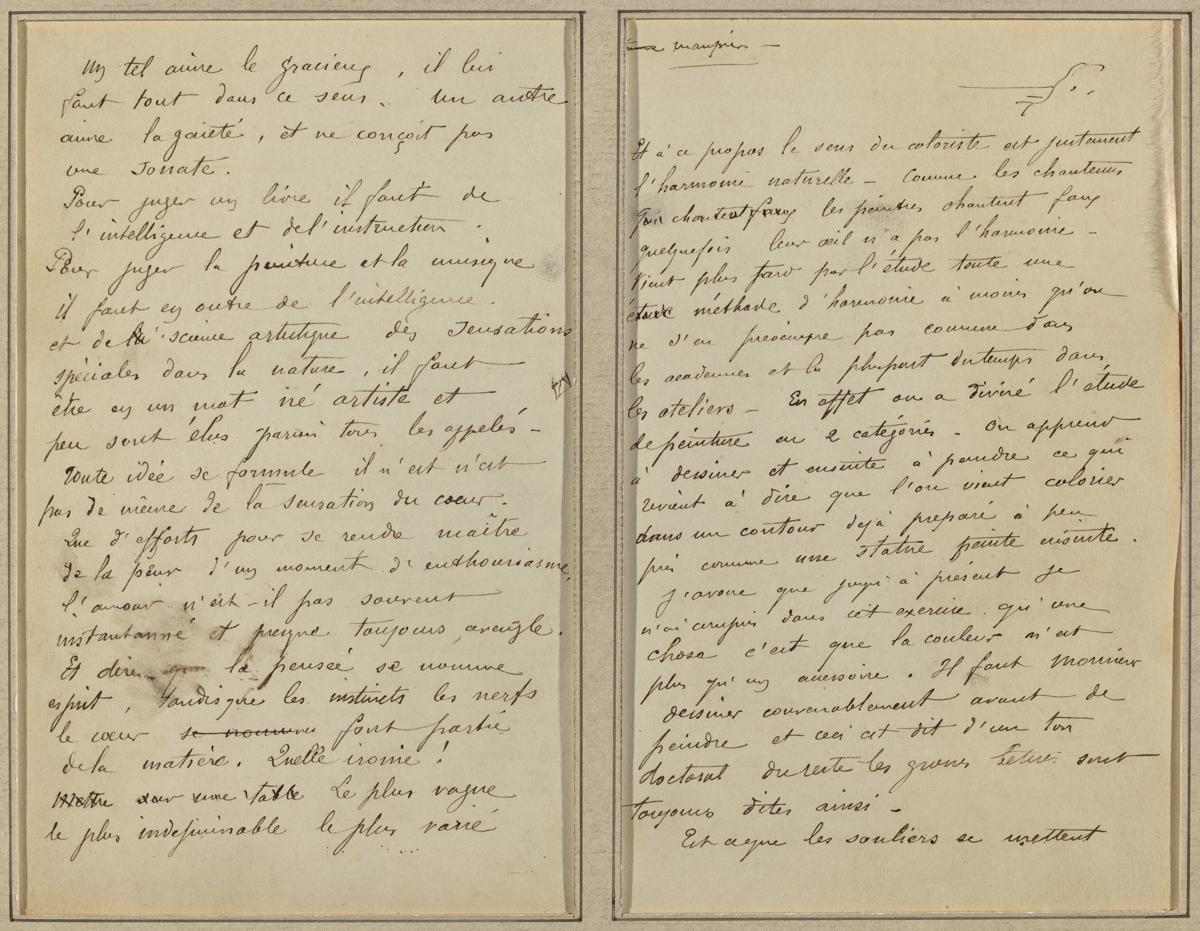 Un tel aime le gracieux, il lui
faut tout dans ce sens. Un autre
aime la gaieté, et ne conçoit pas
une sonate.
Pour juger un livre il faut de
l'intelligence et de l'instruction.
Pour juger la peinture et la musique
il faut en outre de l'intelligence
et de la science artistique des sensations
spéciales dans la nature, il faut
être en un mot né artiste et
peu sont élus parmi tous les appelés -
Toute idée se formule il n'est n'est
pas de même de la sensation du cœur.
Que d'efforts pour se rendre maître
de la peur d'un moment d'enthousiasme,
l'amour n'est-il pas souvent
instantanné et presque toujours aveugle.
Et dire que la penseé se nomme
esprit, tandisque les instincts les nerfs
le cœur se nomme font partie
de la matière. Quelle ironie!
Mettre sur une table Le plus vague
le plus indefinissable le plus varié
manquées -
Et à ce propos le sens du coloriste est justement
l'harmonie naturelle - Comme les chanteurs
qui chantent faux les peintres chantent faux
quelquefois leur œil n'a pas l'harmonie -
Vient plus tard par l'étude toute une
méthode d'harmonie à moins qu'on
ne s'en préoccupe pas comme dans
les academies et la plupart du temps dans
les ateliers - En effet on a divisé l'étude
de peinture en 2 catégories. On apprend
à dessiner et ensuite à peindre ce qui
revient à dire que l'on vient colorier
dans un contour dejà preparé à peu
près comme une statue peinte ensuite.
J'avoue que jusqu'à présent je
n'ai compris dans cet exercise qu'une
chose c'est que la couleur n'est
plus qu'un accessoire. Il faut Monsieur
dessiner convenablement avant de
peindre et ceci est dit d'un ton
doctoral du reste les grosses bêtises sont
toujours dites ainsi -
Est ce que les souliers se mettent